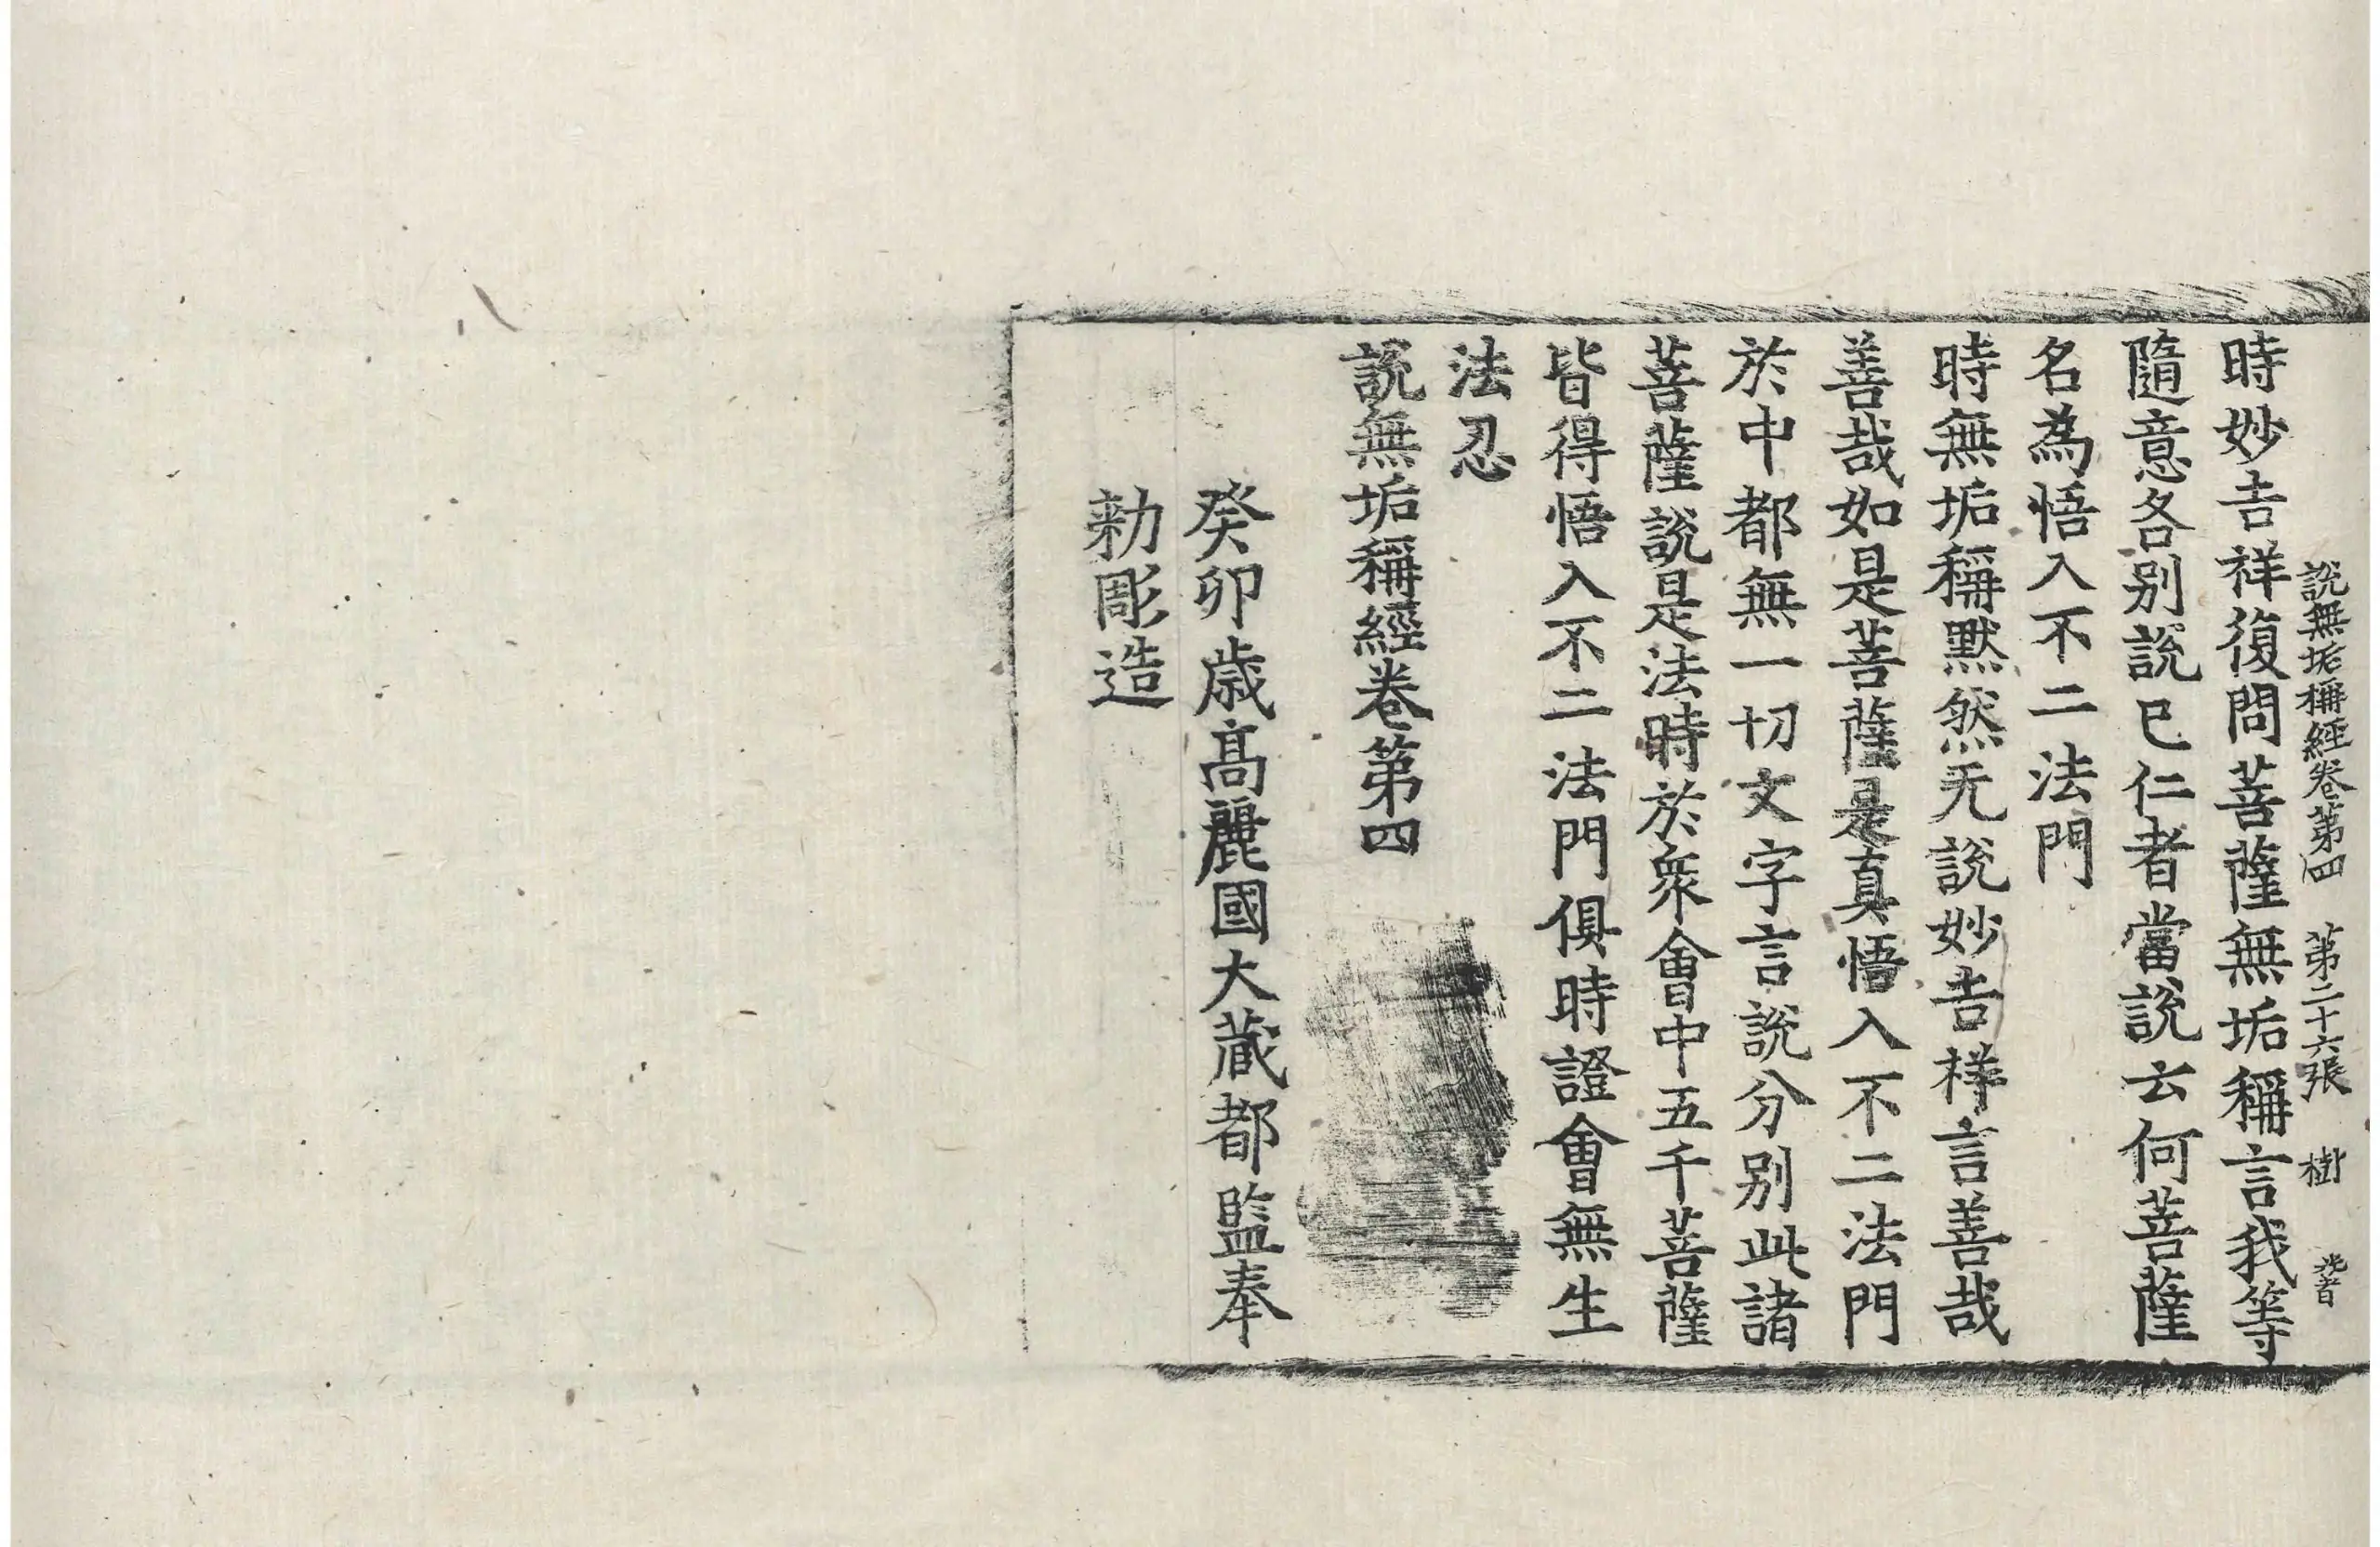 說無垢稱經卷第四 第二十六張 樹
時妙吉祥復問菩薩無垢稱言我等
隨意各別說已仁者當說云何菩薩
名為悟入不二法門
時無垢稱默然无說妙吉祥言善哉
善哉如是菩薩是真悟入不二法門
於中都無一切文字言說分別此諸
菩薩說是法時於眾會中五千菩薩
皆得悟入不二法門俱時證會無生
法忍
說無垢稱經卷第四
癸卯歳高麗國大藏都監奉
勑彫造